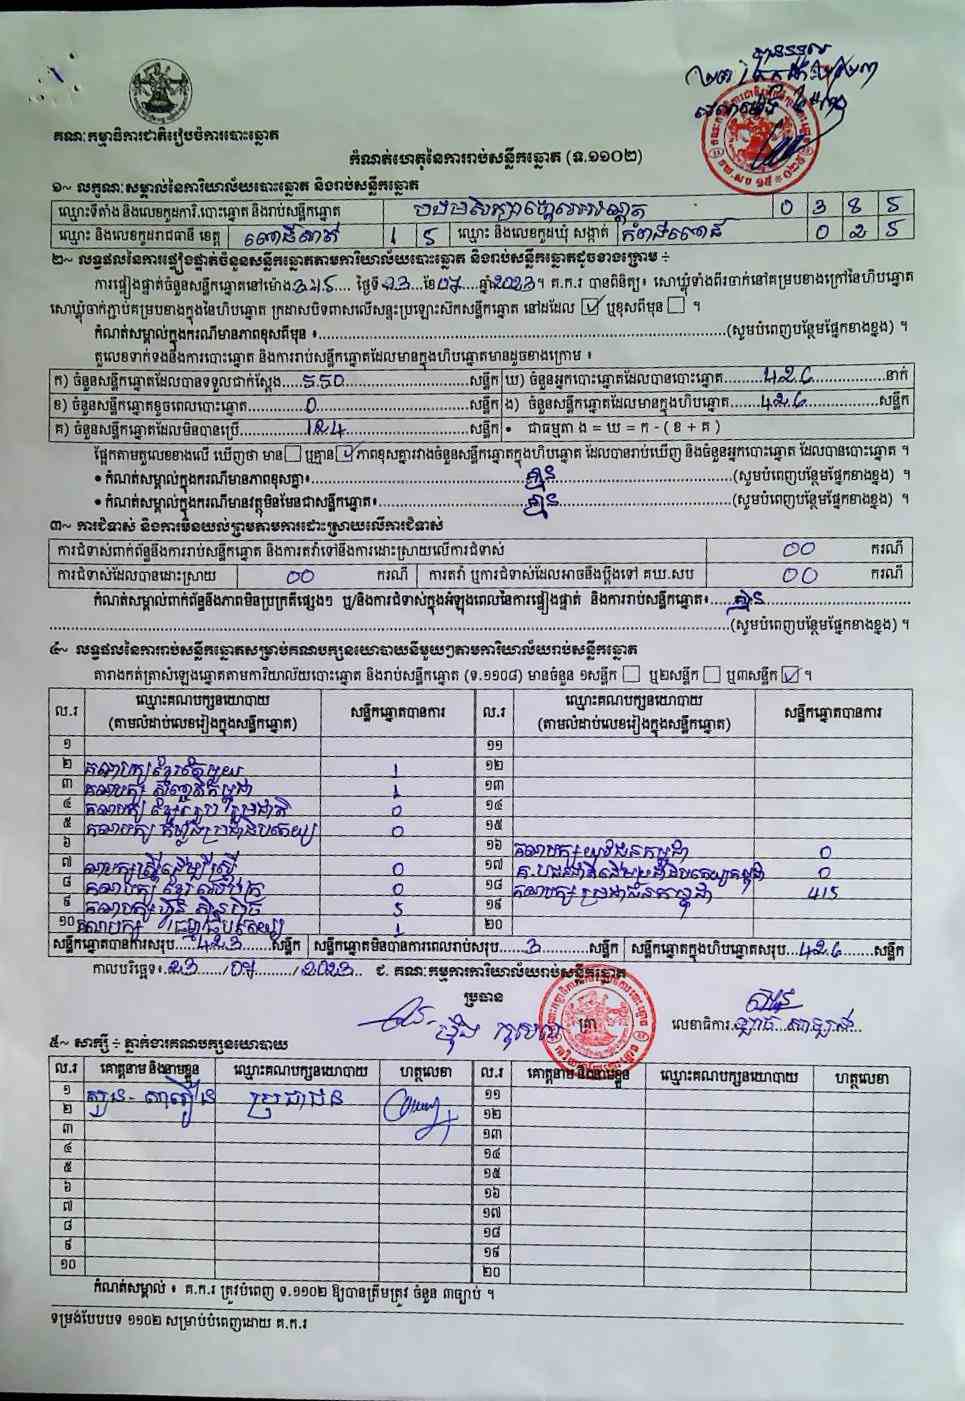 គណៈកម្មាធិការជាតិរៀបចំការបោះឆ្នោត
កំណត់ហេតុនៃការរាប់សន្លឹកឆ្នោត (ទ.១១០២)
១~ លក្ខណៈសម្គាល់នៃការិយាល័យបោះឆ្នោត និងរាប់សន្លឹកឆ្នោត
ឈ្មោះទីតាំង និងលេខកូដការិ.បោះឆ្នោត និងរាប់សន្លឹកឆ្នោត 0 3 8 5
ឈ្មោះ និងលេខកូដរាជធានី ខេត្ត ពោធិ៍សាត់ 1 5 ឈ្មោះ និងលេខកូដឃុំ សង្កាត់ កំពង់ពោធិ៍ 0 2 5
២~ លទ្ធផលនៃការផ្ទៀងផ្ទាត់ចំនួនសន្លឹកឆ្នោតតាមការិយាល័យបោះឆ្នោត និងរាប់សន្លឹកឆ្នោតដូចខាងក្រោម ÷
ការផ្ទៀងផ្ទាត់ចំនួនសន្លឹកឆ្នោតនៅម៉ោង 3:45 ថ្ងៃទី 23 ខែ 07 ឆ្នាំ 2023។ គ.ក.រ បានពិនិត្យ៖ សោឃ្លុំទាំងពីរចាក់នៅគម្របខាងក្រៅនៃហិបឆ្នោត
សោឃ្លុំចាក់ភ្ជាប់គម្របខាងក្នុងនៃហិបឆ្នោត ក្រដាសបិទពាសលើសន្ទះប្រឡោះស៊កសន្លឹកឆ្នោត នៅដដែល ☑ ឬខុសពីមុន ☐ ។
កំណត់សម្គាល់ក្នុងករណីមានភាពខុសពីមុន ៖ (សូមបំពេញបន្ថែមផ្នែកខាងខ្នង) ។
តួលេខទាក់ទងនឹងការបោះឆ្នោត និងការរាប់សន្លឹកឆ្នោតដែលមានក្នុងហិបឆ្នោតមានដូចខាងក្រោម ៖
ក) ចំនួនសន្លឹកឆ្នោតដែលបានទទួលជាក់ស្តែង 550 សន្លឹក ឃ) ចំនួនអ្នកបោះឆ្នោតដែលបានបោះឆ្នោត 426 នាក់
ខ) ចំនួនសន្លឹកឆ្នោតខូចពេលបោះឆ្នោត 0 សន្លឹក ង) ចំនួនសន្លឹកឆ្នោតដែលមានក្នុងហិបឆ្នោត 426 សន្លឹក
គ) ចំនួនសន្លឹកឆ្នោតដែលមិនបានប្រើ 124 សន្លឹក • ជាធម្មតា ង = ឃ = ក - ( ខ + គ )
ផ្អែកតាមតួលេខខាងលើ ឃើញថា មាន ☐ ឬគ្មាន ☑ ភាពខុសគ្នារវាងចំនួនសន្លឹកឆ្នោតក្នុងហិបឆ្នោត ដែលបានរាប់ឃើញ និងចំនួនអ្នកបោះឆ្នោត ដែលបានបោះឆ្នោត ។
• កំណត់សម្គាល់ក្នុងករណីមានភាពខុសគ្នា៖ គ្មាន (សូមបំពេញបន្ថែមផ្នែកខាងខ្នង) ។
• កំណត់សម្គាល់ក្នុងករណីមានវត្ថុមិនមែនជាសន្លឹកឆ្នោត៖ គ្មាន (សូមបំពេញបន្ថែមផ្នែកខាងខ្នង) ។
៣~ ការជំទាស់ និងការមិនយល់ព្រមតាមការដោះស្រាយលើការជំទាស់
ការជំទាស់ពាក់ព័ន្ធនឹងការរាប់សន្លឹកឆ្នោត និងការតវ៉ាទៅនឹងការដោះស្រាយលើការជំទាស់ 00 ករណី
ការជំទាស់ដែលបានដោះស្រាយ 00 ករណី ការតវ៉ា ឬការជំទាស់ដែលអាចនឹងប្តឹងទៅ គឃ.សប 00 ករណី
កំណត់សម្គាល់ពាក់ព័ន្ធនឹងភាពមិនប្រក្រតីផ្សេងៗ ឬ/និងការជំទាស់ក្នុងអំឡុងពេលនៃការផ្ទៀងផ្ទាត់ និងការរាប់សន្លឹកឆ្នោត៖ គ្មាន
(សូមបំពេញបន្ថែមផ្នែកខាងខ្នង) ។
៤~ លទ្ធផលនៃការរាប់សន្លឹកឆ្នោតសម្រាប់គណបក្សនយោបាយនីមួយៗតាមការិយាល័យរាប់សន្លឹកឆ្នោត
តារាងកត់ត្រាសំឡេងឆ្នោតតាមការិយាល័យបោះឆ្នោត និងរាប់សន្លឹកឆ្នោត (ទ.១១០៨) មានចំនួន ១សន្លឹក ☐ ឬ២សន្លឹក ☐ ឬ៣សន្លឹក ☑ ។
ល.រ ឈ្មោះគណបក្សនយោបាយ (តាមលំដាប់លេខរៀងក្នុងសន្លឹកឆ្នោត) សន្លឹកឆ្នោតបានការ ល.រ ឈ្មោះគណបក្សនយោបាយ (តាមលំដាប់លេខរៀងក្នុងសន្លឹកឆ្នោត) សន្លឹកឆ្នោតបានការ
១ ១១
២ គណបក្ស ខ្មែរតែមួយ 1 ១២
៣ គណបក្ស សញ្ជាតិកម្ពុជា 1 ១៣
៤ គណបក្ស ខ្មែររួបរួមជាតិ 0 ១៤
៥ គណបក្ស សំបុកឃ្មុំ 0 ១៥
៦ ១៦ គណបក្ស យុវជនកម្ពុជា 0
៧ គណបក្សស្ត្រីដើម្បីស្ត្រី 0 ១៧ 0
៨ គណបក្ស ខ្មែរ 0 ១៨ គណបក្ស ប្រជាជនកម្ពុជា 415
៩ គណបក្ស ហ្វ៊ុនស៊ិនប៉ិច 5 ១៩
១០ គណបក្ស ធម្មាធិបតេយ្យ 1 ២០
សន្លឹកឆ្នោតបានការសរុប 423 សន្លឹក សន្លឹកឆ្នោតមិនបានការពេលរាប់សរុប 3 សន្លឹក សន្លឹកឆ្នោតក្នុងហិបឆ្នោតសរុប 426 សន្លឹក
កាលបរិច្ឆេទ៖ 23 / 07 / 2023 ជ. គណៈកម្មការការិយាល័យរាប់សន្លឹកឆ្នោត
ប្រធាន
ត្រា លេខាធិការ
៥~ សាក្សី ÷ ភ្នាក់ងារគណបក្សនយោបាយ
ល.រ គោត្តនាម និងនាមខ្លួន ឈ្មោះគណបក្សនយោបាយ ហត្ថលេខា ល.រ គោត្តនាម និងនាមខ្លួន ឈ្មោះគណបក្សនយោបាយ ហត្ថលេខា
១ ប្រជាជន ១១
២ ១២
៣ ១៣
៤ ១៤
៥ ១៥
៦ ១៦
៧ ១៧
៨ ១៨
៩ ១៩
១០ ២០
កំណត់សម្គាល់ ៖ គ.ក.រ ត្រូវបំពេញ ទ.១១០២ ឱ្យបានត្រឹមត្រូវ ចំនួន ៣ច្បាប់ ។
ទម្រង់បែបបទ ១១០២ សម្រាប់បំពេញដោយ គ.ក.រ